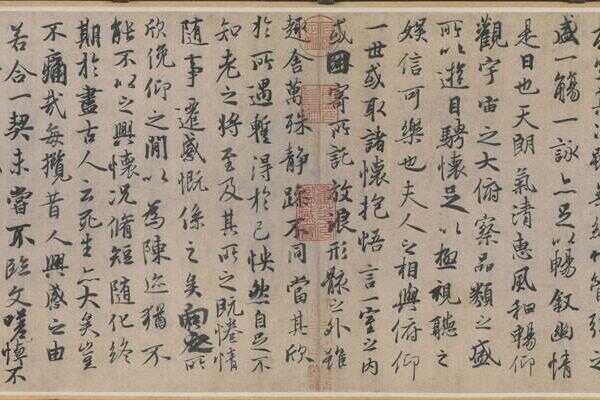 列坐其次雖無絲竹管弦之
盛一觴一詠亦足以暢敘幽情
是日也天朗氣清惠風和暢仰
觀宇宙之大俯察品類之盛
所以遊目騁懷足以極視聽之
娛信可樂也夫人之相與俯仰
一世或取諸懷抱悟言一室之內
或因寄所託放浪形骸之外雖
趣舍萬殊靜躁不同當其欣
於所遇暫得於己怏然自足不
知老之將至及其所之既惓情
隨事遷感慨係之矣向之所
欣俛仰之閒以為陳迹猶不
能不以之興懷況脩短隨化終
期於盡古人云死生亦大矣豈
不痛哉每攬昔人興感之由
若合一契未嘗不臨文嗟悼不